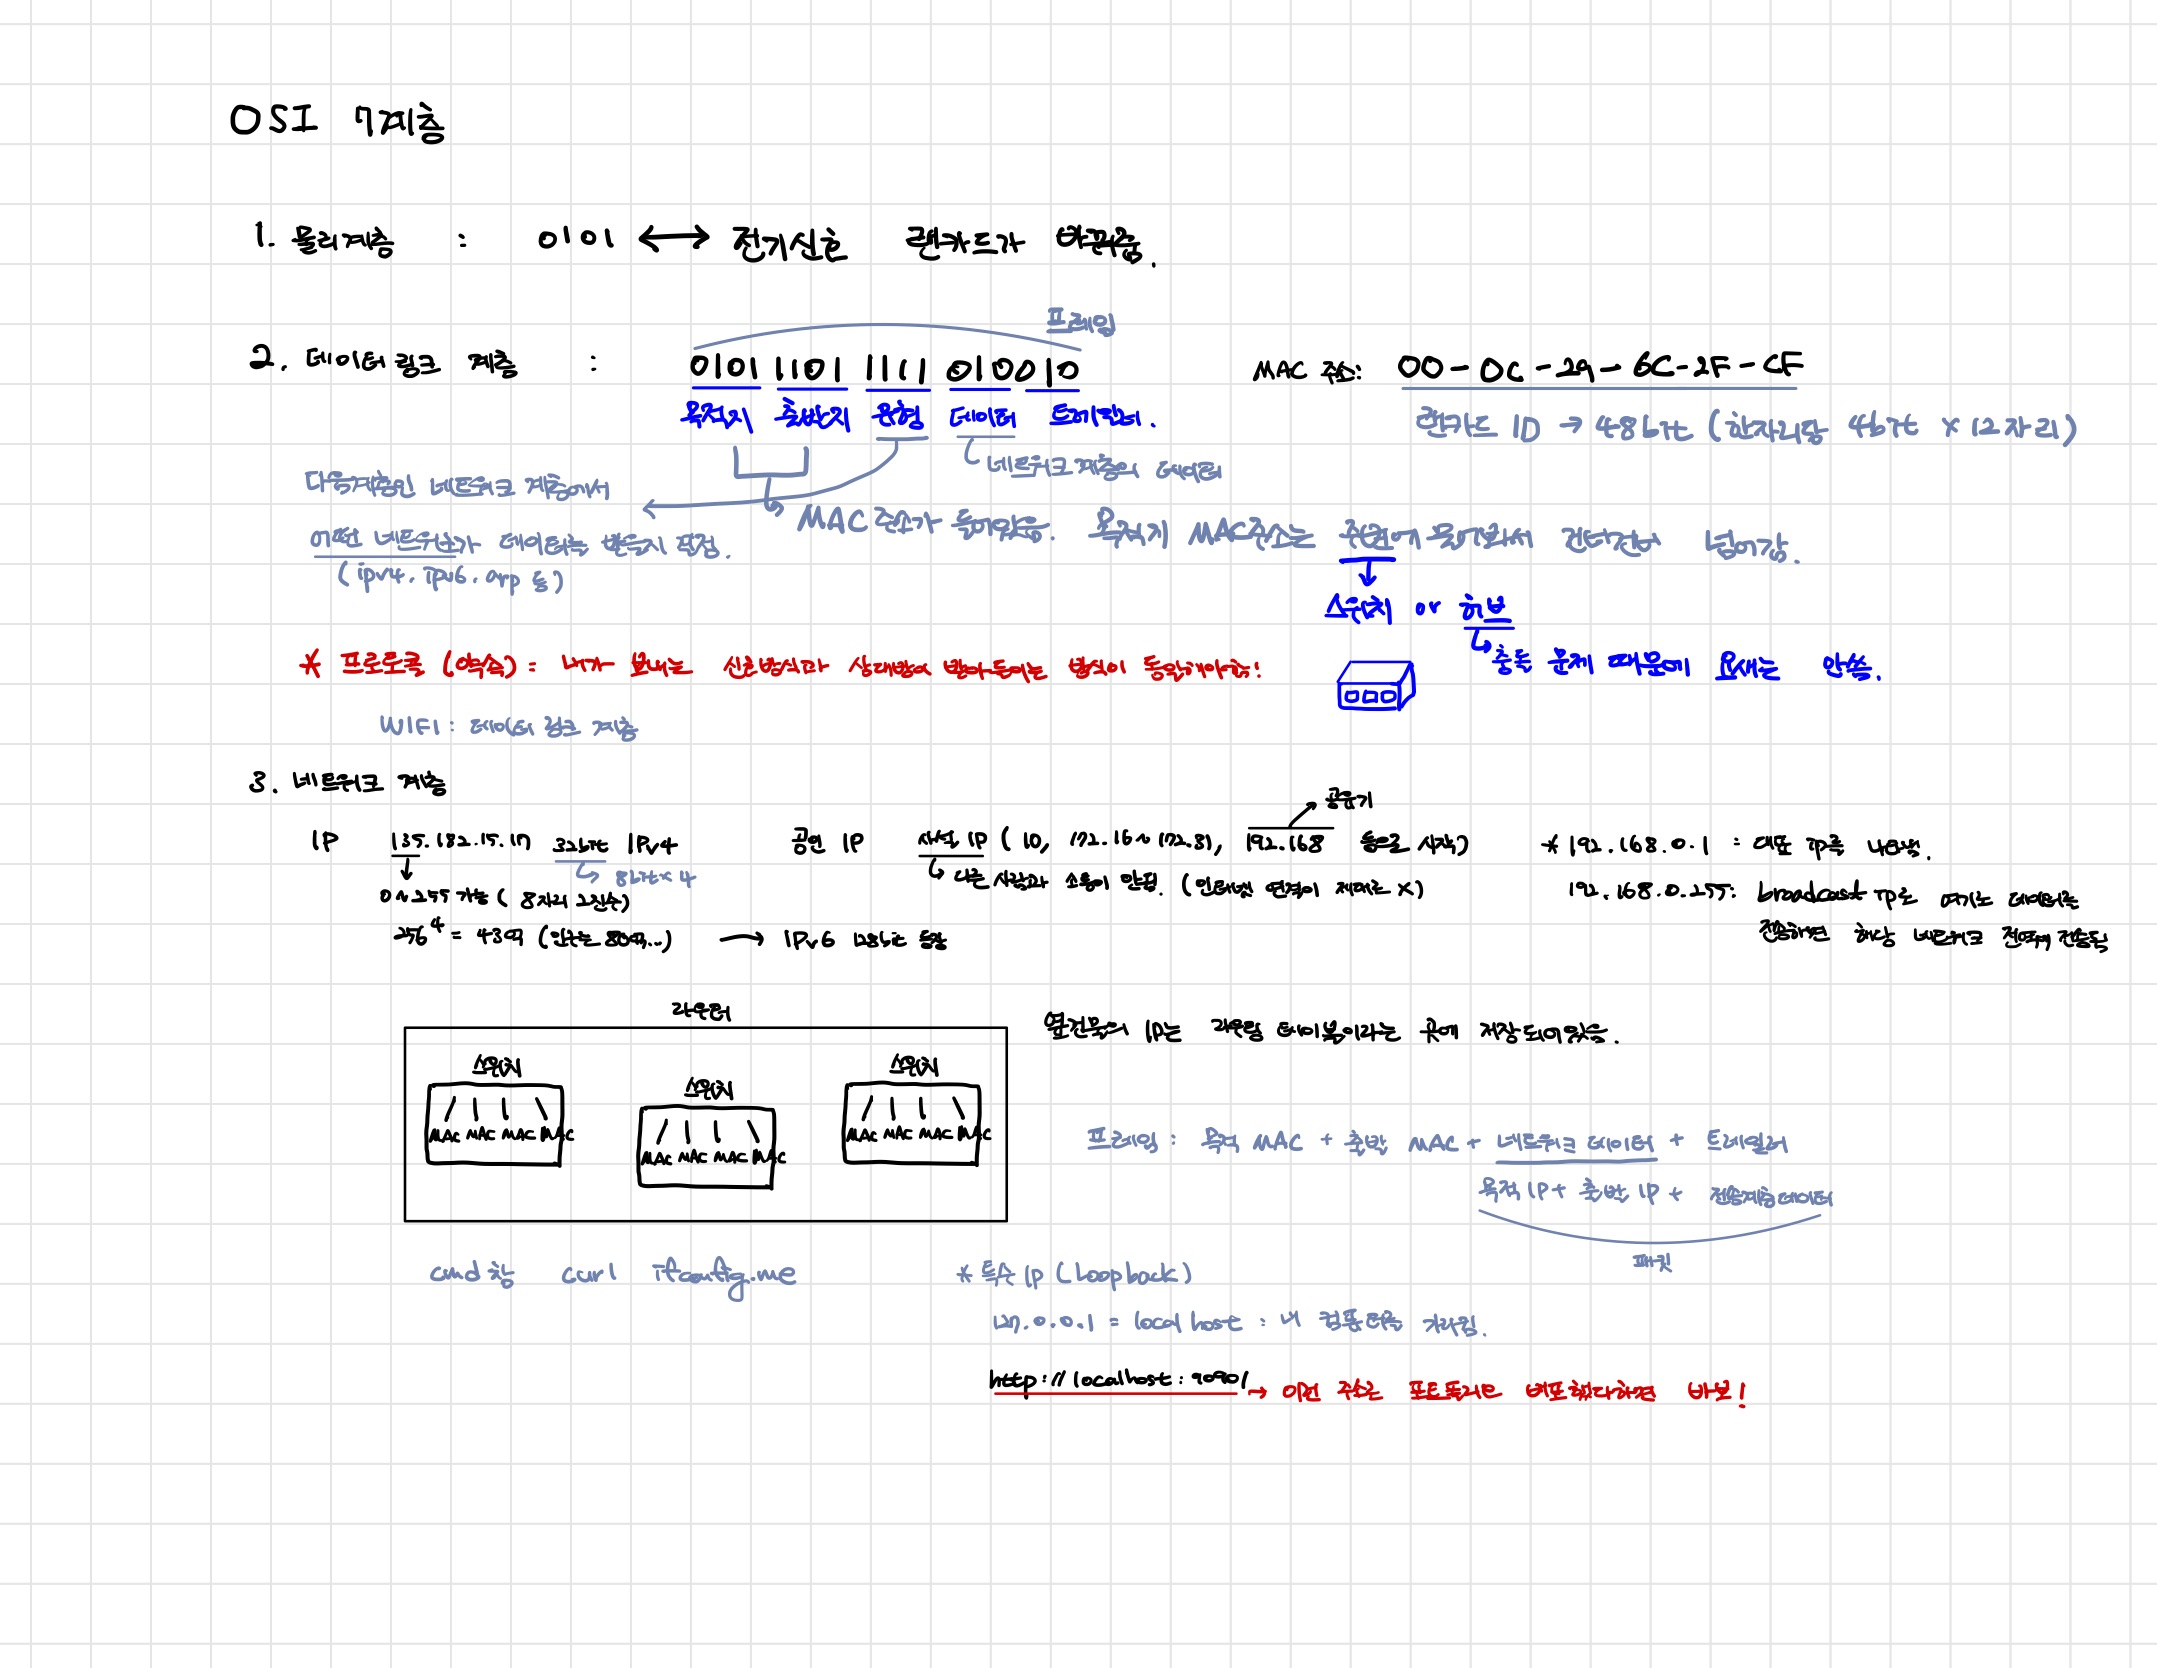 OSI 7계층
1. 물리계층 : 0101 ↔ 전기신호 랜카드가 바꿔줌.
프레임
2. 데이터 링크 계층 : 0101 1101 1111 010010
목적지 출발지 유형 데이터 트레일러.
MAC 주소: 00-0c-29-6C-2F-CF
랜카드 ID → 48bit (한자리당 4bit × 12자리)
네트워크 계층의 데이터
다음계층인 네트워크 계층에서
어떤 네트워크가 데이터를 받을지 결정.
(ipv4. ipv6. arp 등)
MAC 주소가 들어있음. 목적지 MAC주소는 주변에 물어봐서 건너건너 넘어감.
스위치 or 허브
충돌 문제 때문에 요새는 안씀.
* 프로토콜 (약속) = 내가 보내는 신호방식과 상대방이 받아들이는 방식이 동일해야함!
WIFI : 데이터 링크 계층
3. 네트워크 계층
공유기
IP 135.182.15.17 32bit IPv4
8bit×4
0~255 가능 ( 8자리 2진수)
256⁴ = 43억 (인구는 80억..) → IPv6 128bit 등장
공인 IP 사설 IP ( 10, 172.16~172.31, 192.168 등으로 시작)
다른 사람과 소통이 안됨. (인터넷 연결이 제대로 X)
* 192.168.0.1 : 대표 ip를 나타냄.
192.168.0.255: broadcast ip로 여기로 데이터를
전송하면 해당 네트워크 전역에 전송됨
라우터
스위치 스위치 스위치
MAC MAC MAC MAC
MAC MAC MAC MAC
MAC MAC MAC MAC
옆건물의 IP는 라우팅 테이블이라는 곳에 저장되어있음.
프레임 : 목적 MAC + 출발 MAC + 네트워크 데이터 + 트레일러
목적 IP + 출발 IP + 전송계층데이터
패킷
cmd 창 curl ifconfig.me
* 특수 IP (Loopback)
127.0.0.1 = localhost : 내 컴퓨터를 가리킴.
http://localhost:9090/ → 이런 주소로 포트폴리오 배포했다하면 바보!